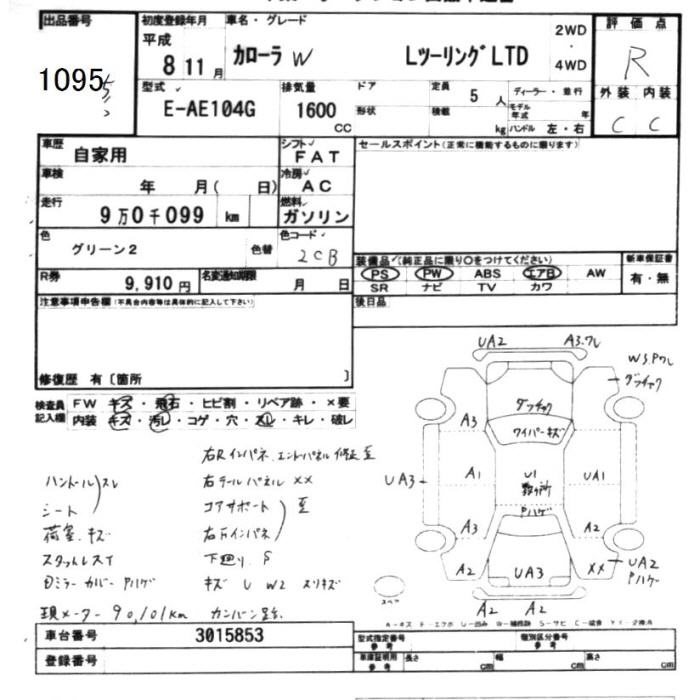 出品番号
1095
初度登録年月
平成
8 11 月
車名・グレード
カローラ W LツーリングLTD
2WD
・
4WD
評価点
R
型式
E-AE104G
排気量
1600
CC
ドア
形状
定員
5 人
積載
kg
ディーラー・並行
モデル
年式 年
ハンドル 左・右
外装 内装
C C
車歴
自家用
シフト
FAT
セールスポイント(正常に機能するものに限ります)
車検
年 月( 日)
冷房
AC
走行
9万0千099 km
燃料
ガソリン
色
グリーン2
色替
色コード
2CB
装備品(純正品に限り○をつけてください)
新車保証書
PS PW ABS エアB AW
有・無
SR ナビ TV カワ
R券
9,910円
名変通知期限
月 日
後日品
注意事項申告欄(不具合内容等は具体的に記入して下さい)
修復歴 有〔箇所 〕
検査員
記入欄
FW キズ・飛石・ヒビ割・リペア跡・×要
内装 キズ・汚レ・コゲ・穴・スレ・キレ・破レ
右Rインパネ、エンドパネル修正 歪
ハンドル スレ
右テールパネル ××
シート
コアサポート 歪
荷室 キズ
右Fインパネ
スタッドレスT
下廻り S
ミラーカバー Pハゲ
キズ U W2 スリキズ
現メーター 90,101km
UA2
A3.ワレ
W3.Pワレ
A3
ワイパーキズ
UA3
A1
U1
UA1
Pハゲ
A3
A2
A2
UA3
××
UA2
Pハゲ
スペア
A2
A2
車台番号
3015853
登録番号
型式指定番号
参考
類別区分番号
参考
車庫証明用
参考
長さ
cm
幅
cm
高さ
cm